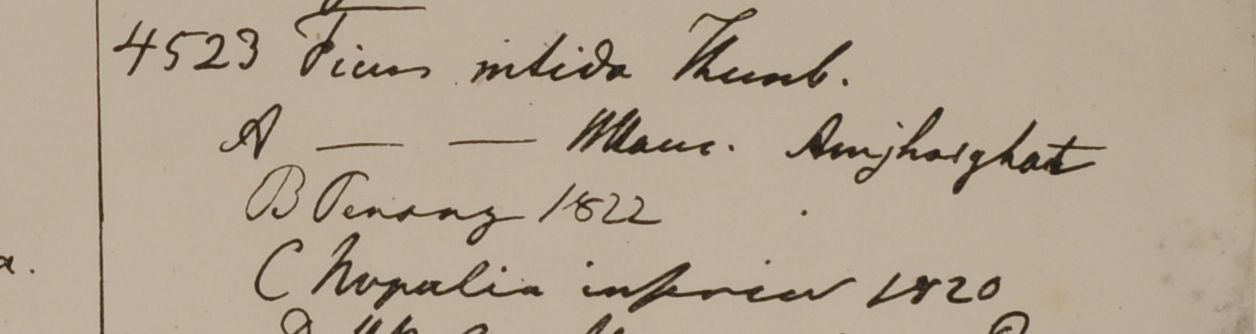 4523 Ficus nitida Thunb.
A — — Amjharghat
B Penang 1822
C Napalia inferior 1820
a.